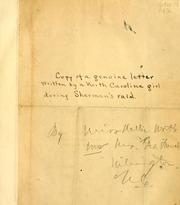 Copy of a genuine letter
written by a North Carolina girl
during Sherman's raid.
By Miss Nellie Worth
now Mrs.
Wilmington
N.C.